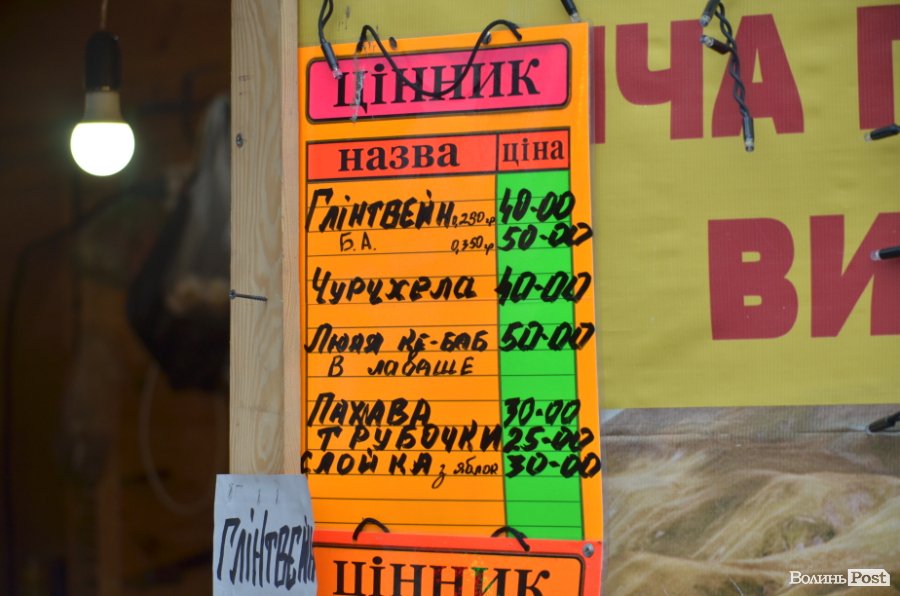 ЦІННИК
назва ціна
Глінтвейн 0,250 г 40-00
Б.А. 0,350 г 50-00
Чурчхела 40-00
Люля ке-баб 50-00
в лаваше
Пахлава 30-00
трубочки 25-00
слойка з яблок 30-00
ЦІННИК
ГЛІНТВЕЙН
ЧА
ВИ
ВолиньPost